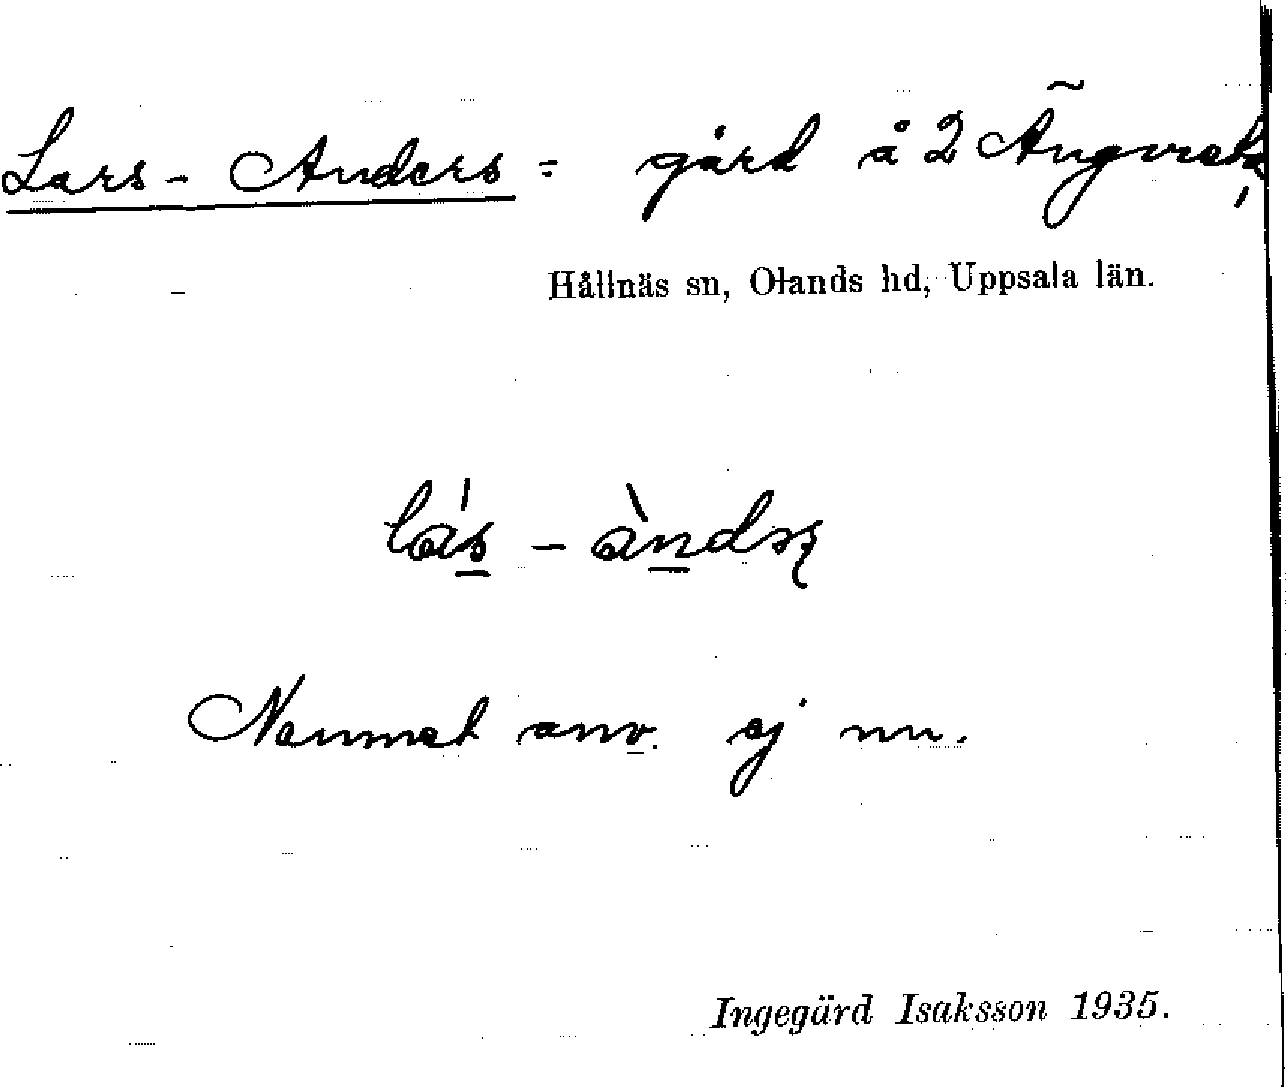 Lars-Anders = gård å 2 Ängvreta,
Hållnäs sn, Olands hd, Uppsala län.
Namnet anv. ej nu.
Ingegärd Isaksson 1935.